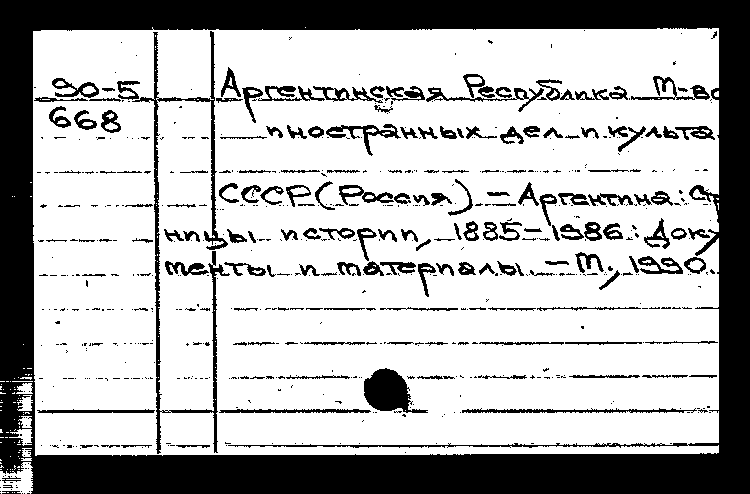 90-5
668
Аргентинская Республика М-во
иностранных дел и культа
СССР (Россия) - Аргентина: Стр
ницы истории, 1885-1986: Доку
менты и материалы. - М., 1990.